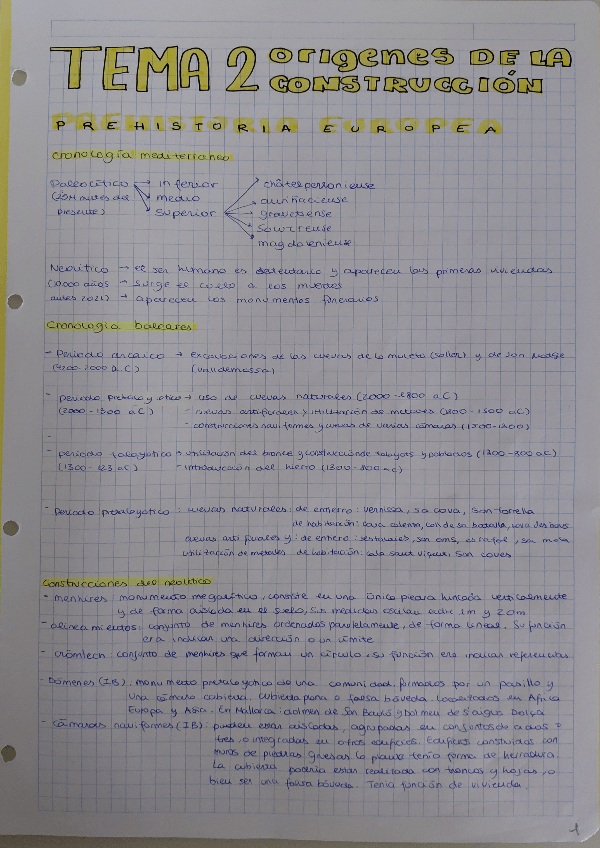 TEMA 2 ORIGENES DE LA
CONSTRUCCIÓN
PREHISTORIA EUROPEA
Cronología mediterraneo
Paleolítico → inferior châtelperroniense
medio auriñaciense
superior gravetiense
presente) magdaleniense
Neolítico → el ser humano es sedentario y aparecen las primeras viviendas
(10.000 años → Surge el culto a los muertos
antes 2021) → aparecen los monumentos funerarios
Cronología baleares
- Periodo arcaico → excavaciones de las cuevas de la muleta (soller) y de son
a.C) (valldemossa)
- periodo → uso de cuevas naturales
(2000-1300 a.C) - cuevas artificiales y utilización de metales
- construcciones naviformes y cuevas de varias cámaras
-
- periodo talayótico → utilización del bronce y construcción de talayots y poblados
- introducción del hierro
- Periodo pretalayótico : cuevas naturales : de entierro : vernissa, sa cova, son torrella
de habitación :
cuevas artificiales y : de entierro : son
utilización de metales de habitación : cala sant vicenç, son coves
Construcciones del neolítico
- menhires : monumento megalítico, consiste en una única piedra hincada verticalmente
y de forma aislada en el suelo, sus medidas oscilan entre 1m y 20m
- alineamientos : conjunto de menhires ordenados paralelamente, de forma lineal. Su función
era indicar una dirección o un límite
- crómlech : conjunto de menhires que forman un círculo, su función era indicar referencias
- Dólmenes (IB) : monumento pretalayótico de una comunidad, formados por un pasillo y
una cámara cubierta. Cubierta plana o falsa bóveda. Localizados en Africa
Europa y Asia. En Mallorca : dolmen de Son Bauló y dolmen de S'aigua Dolça
- Cámaras naviformes (IB) : pueden estar aisladas, agrupadas en conjuntos de a dos o
tres, o integradas en otros edificios. Edificios construidos con
muros de piedras gruesas, la planta tenía forma de herradura.
La cubierta podería estar realizada con troncos y hojas, o
bien ser una falsa bóveda. Tenía función de vivienda.
1